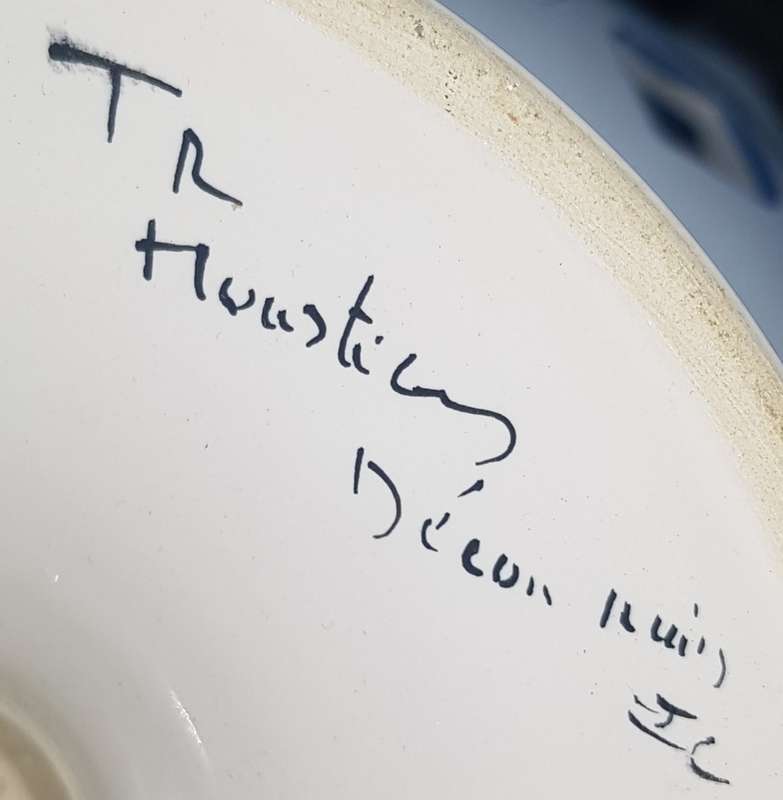 TR
Moustiers
Décor main
JC